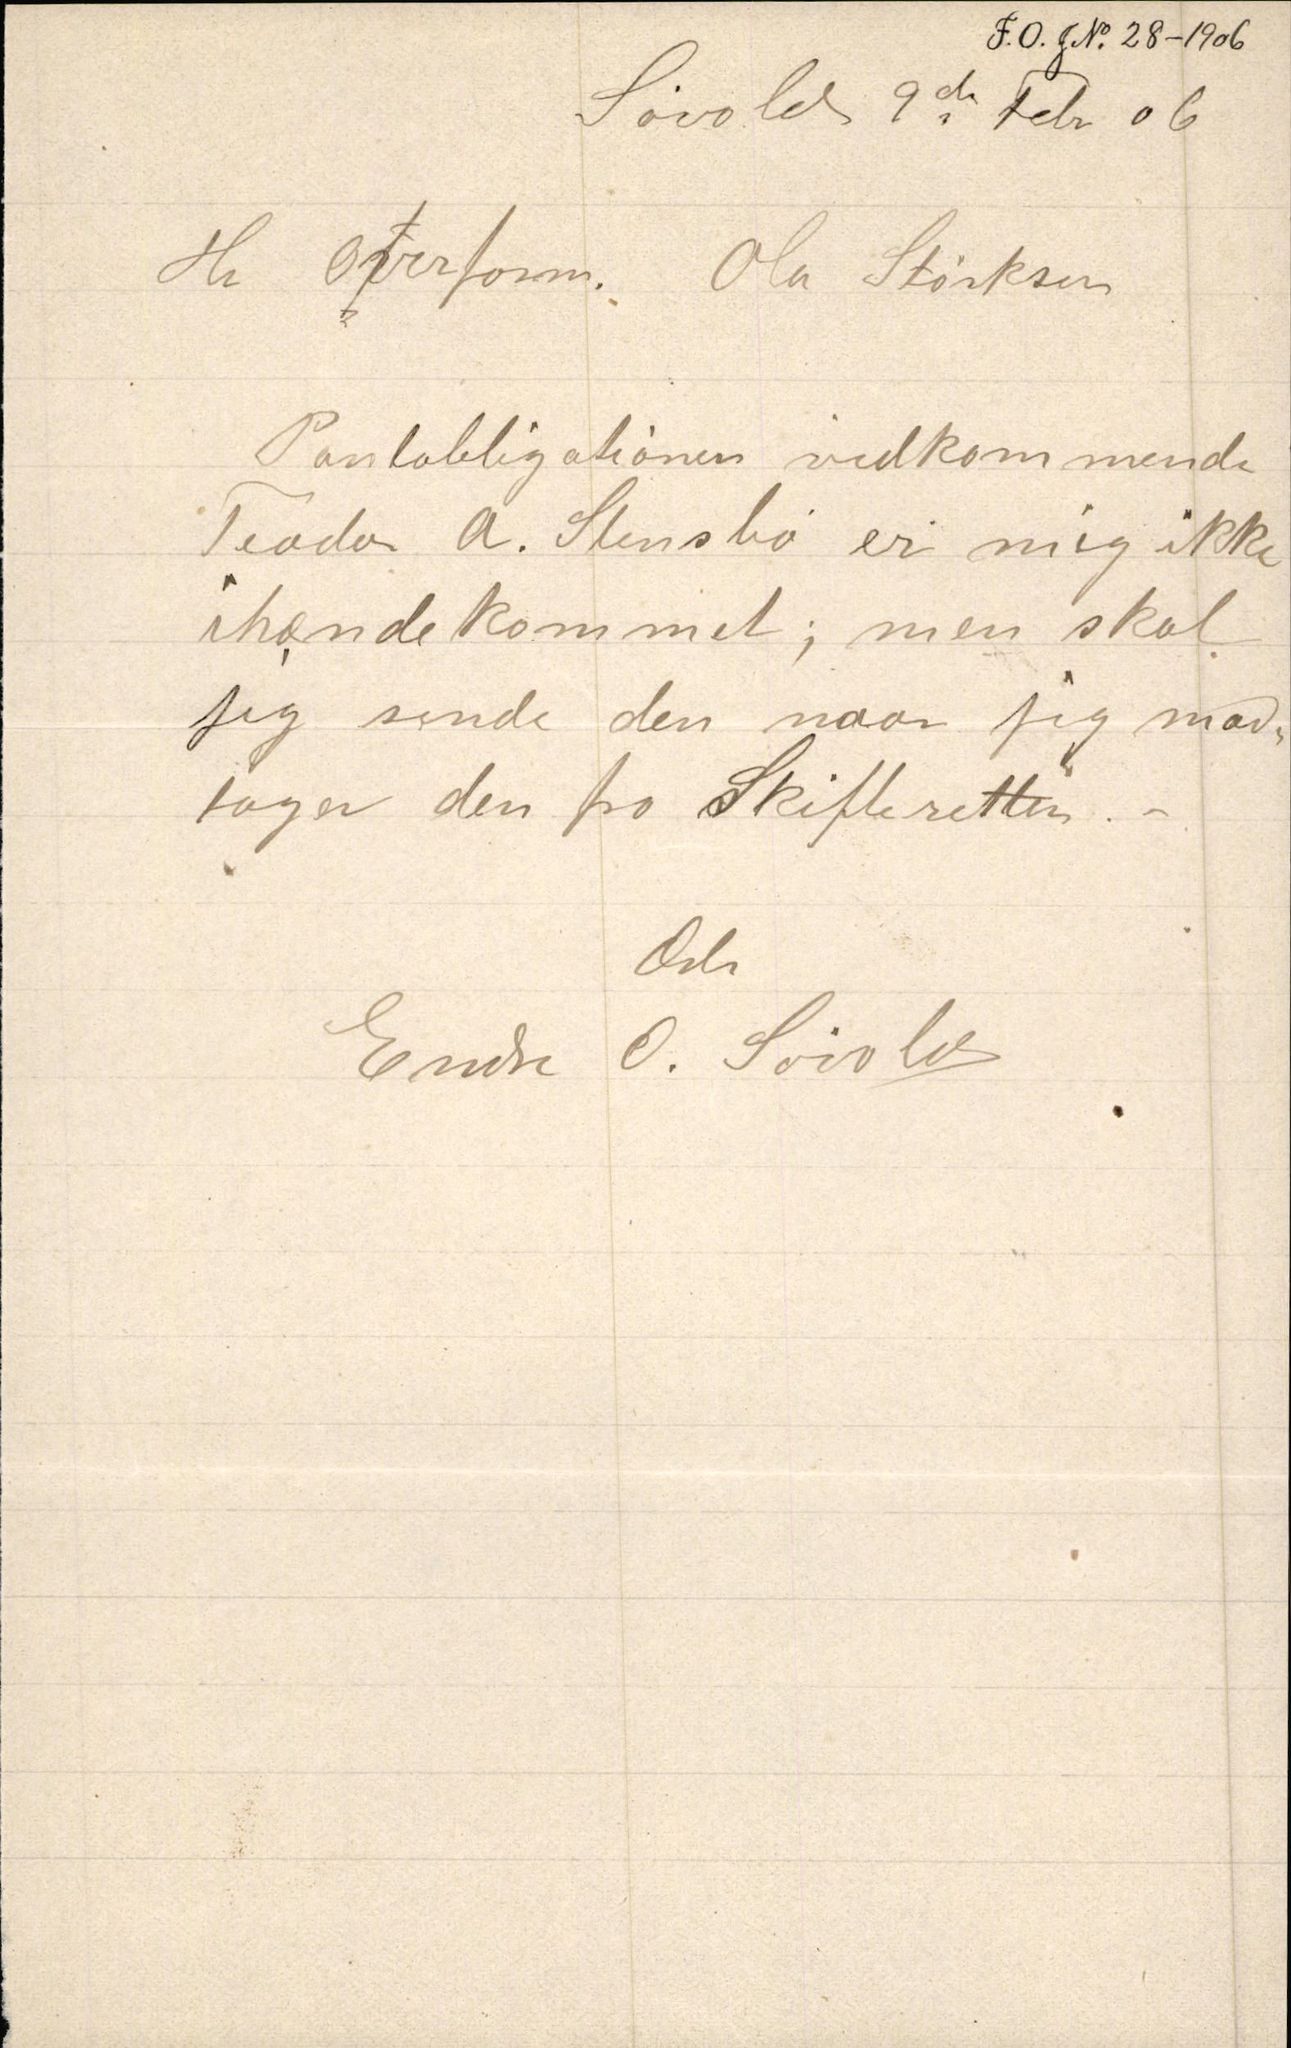 F.O. J.No. 28-1906
Søvold 9de Febr 06
Hr Overform. Ola Störksen
Pantobligationen vedkommende
Teodor A. Stensbö er mig ikke
ihændekommet; men skal
jeg sende den naar jeg mod-
tager den fra Skifteretten. -
Erb
Endre O. Søvold